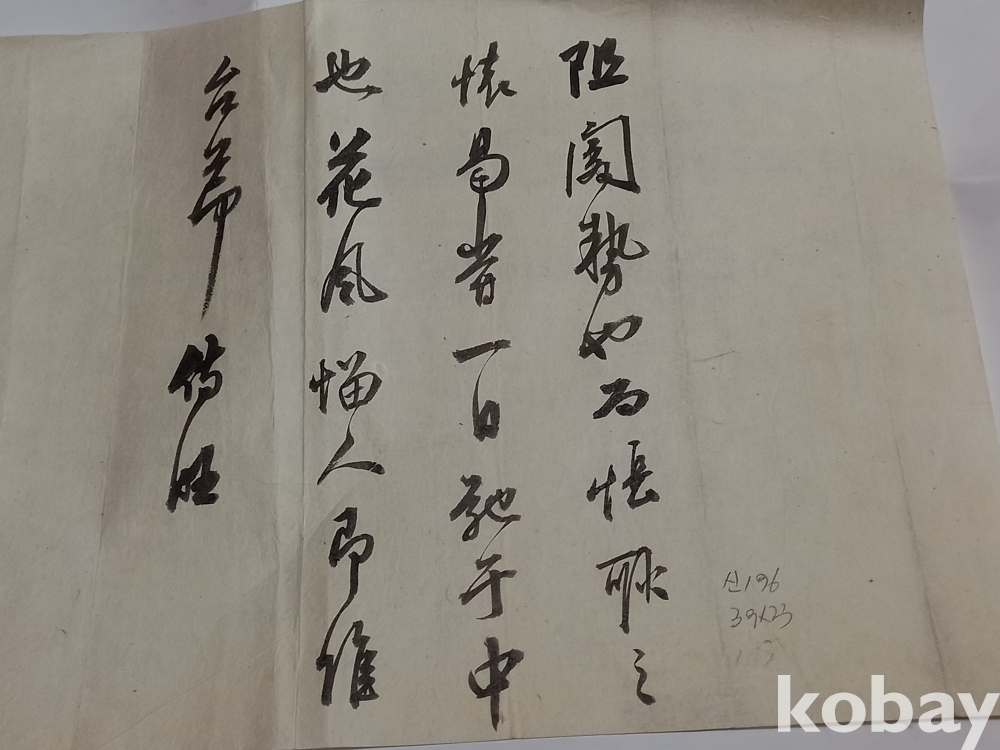 阻闊勢也而悵耿之
懷曷嘗一日弛于中
也花風惱人即惟
台節侍旺
신196
39×23
kobay